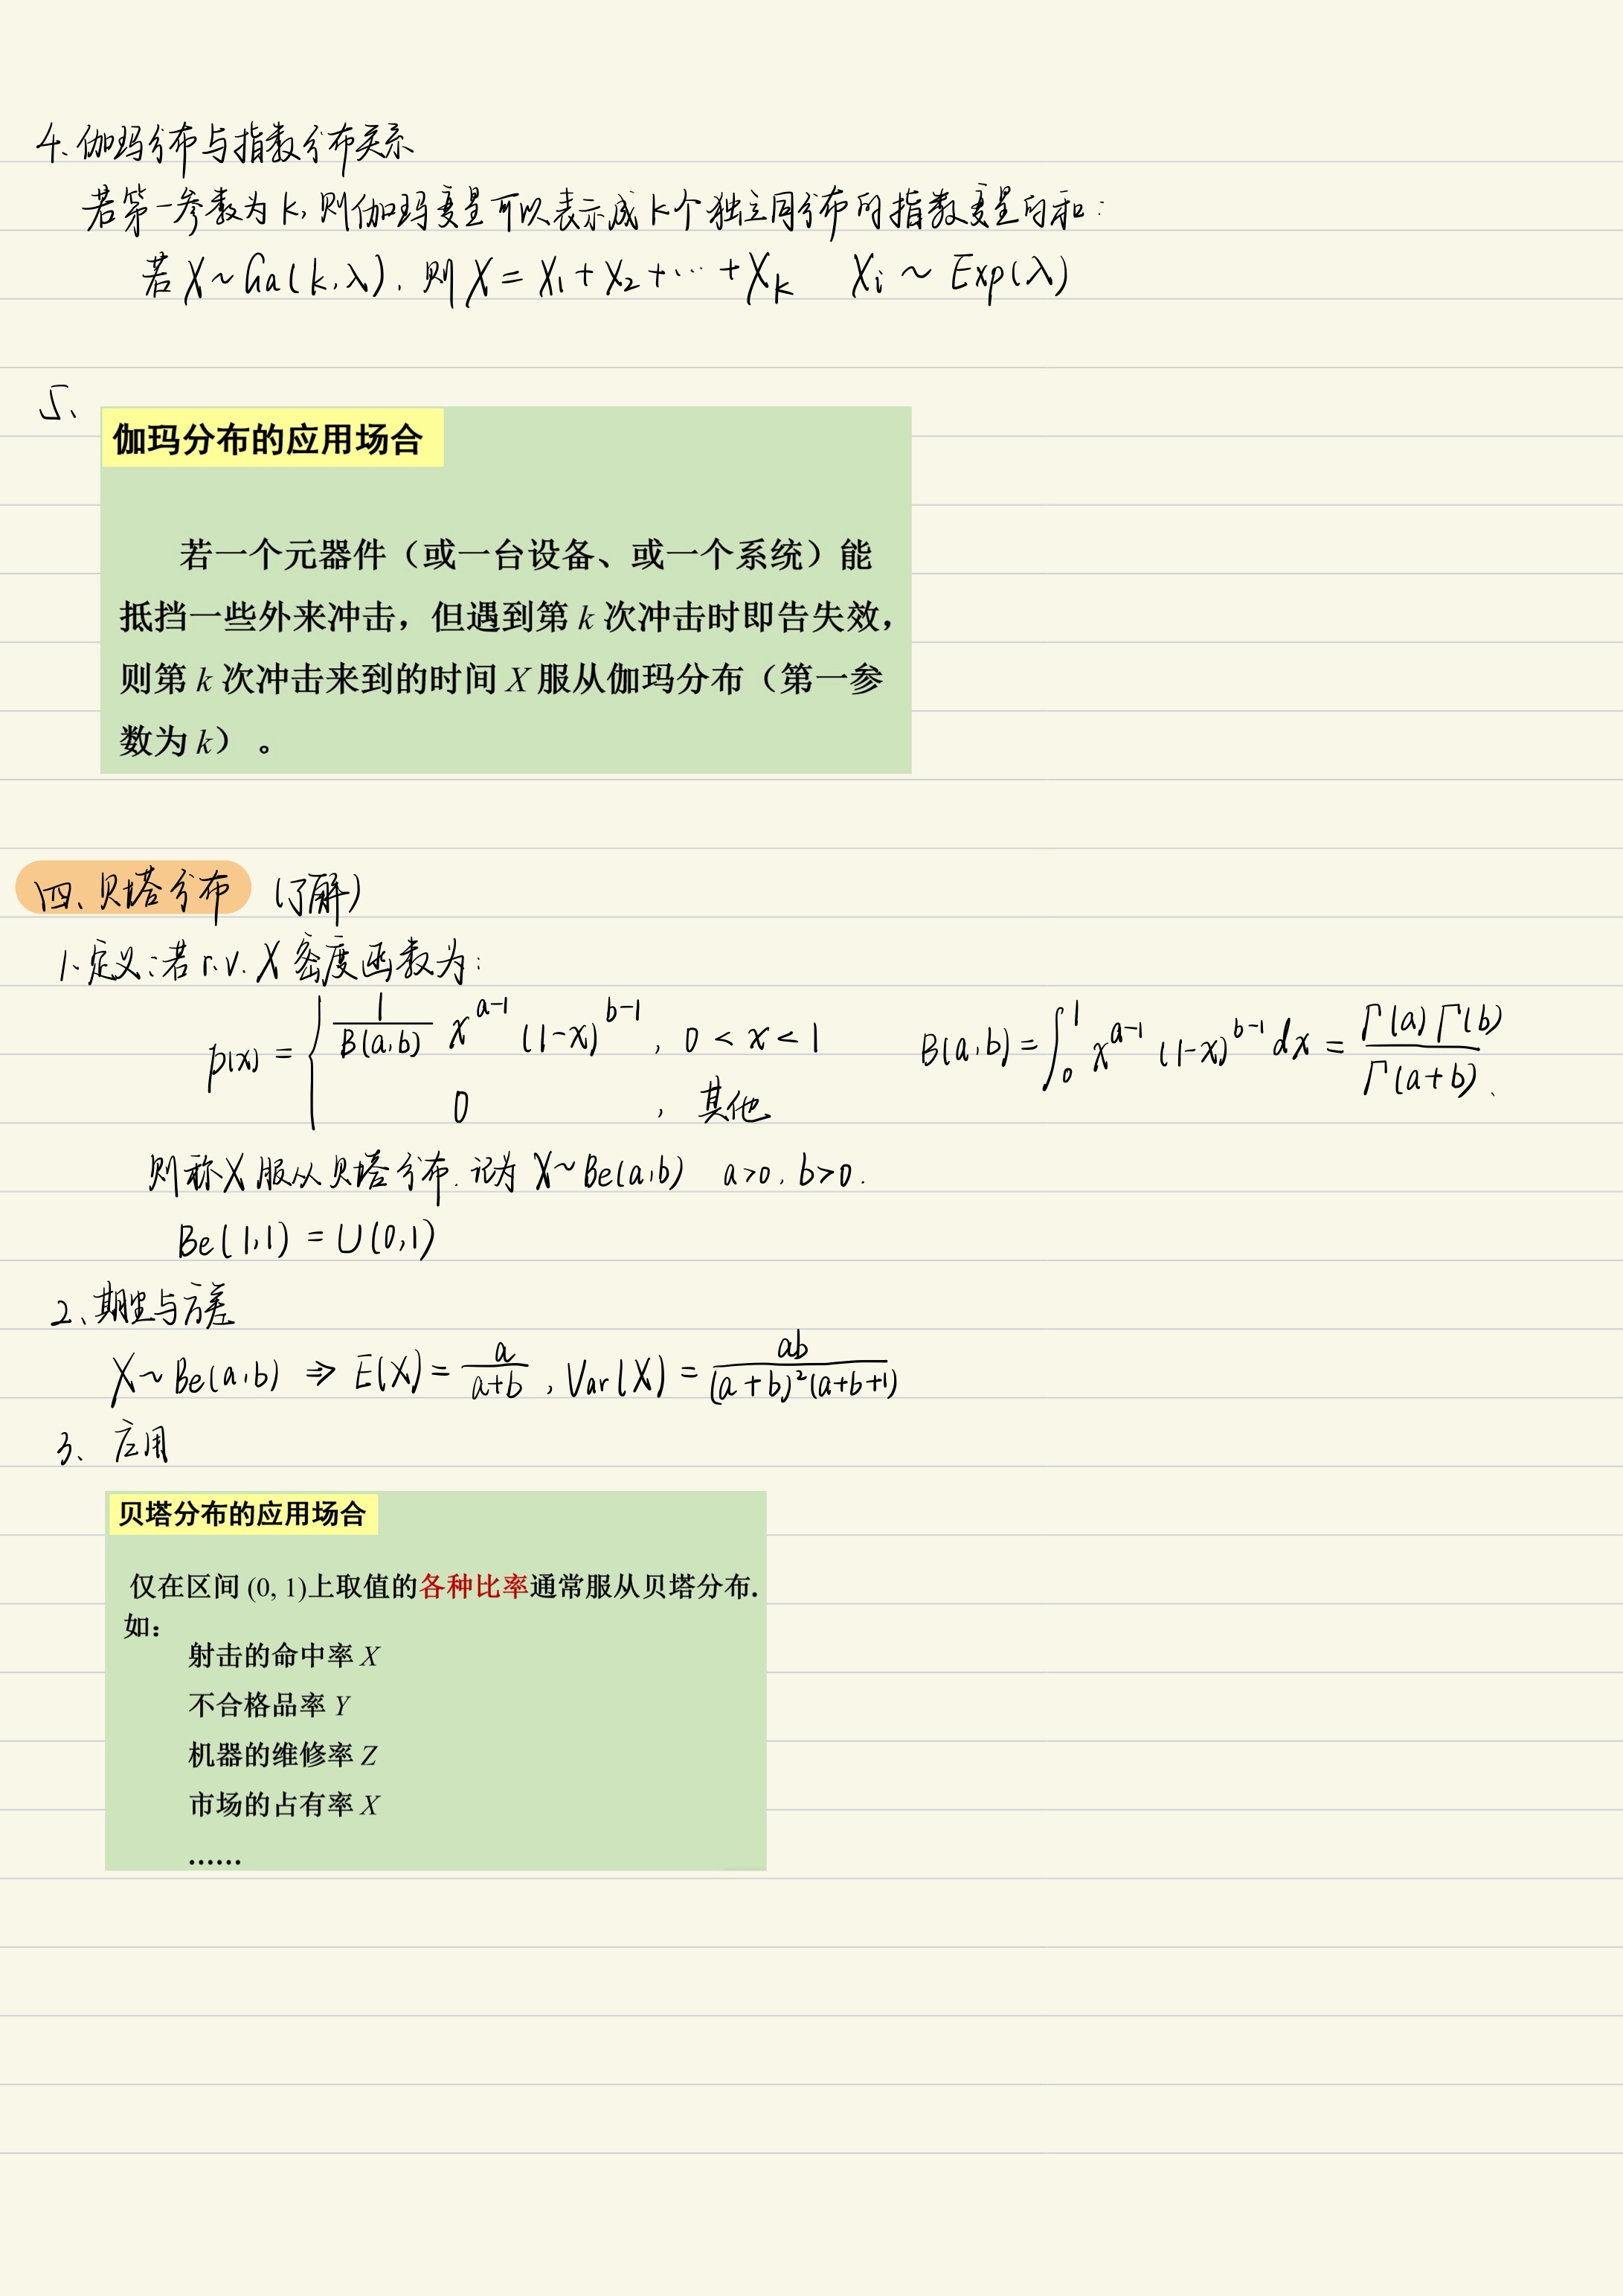 4、伽玛分布与指数分布关系
若第一参数为k,则伽玛变量可以表示成k个独立同分布的指数变量的和:
若 X~Ga(k,λ), 则 X = X₁ + X₂ + ⋯ + Xₖ  Xᵢ ~ Exp(λ)
5、
伽玛分布的应用场合
若一个元器件（或一台设备、或一个系统）能
抵挡一些外来冲击，但遇到第 k 次冲击时即告失效，
则第 k 次冲击来到的时间 X 服从伽玛分布（第一参
数为 k） 。
四、贝塔分布 (了解)
1、定义:若r.v. X密度函数为:
p(x) = { 1/B(a,b) x^(a-1) (1-x)^(b-1), 0 < x < 1  B(a,b) = ∫₀¹ x^(a-1) (1-x)^(b-1) dx = Γ(a)Γ(b)/Γ(a+b).
0 , 其他
则称X服从贝塔分布. 记为 X~Be(a,b)  a>0, b>0.
Be(1,1) = U(0,1)
2、期望与方差
X~Be(a,b) ⇒ E(X) = a/(a+b), Var(X) = ab/((a+b)²(a+b+1))
3、应用
贝塔分布的应用场合
仅在区间 (0, 1)上取值的各种比率通常服从贝塔分布.
如：
射击的命中率 X
不合格品率 Y
机器的维修率 Z
市场的占有率 X
……